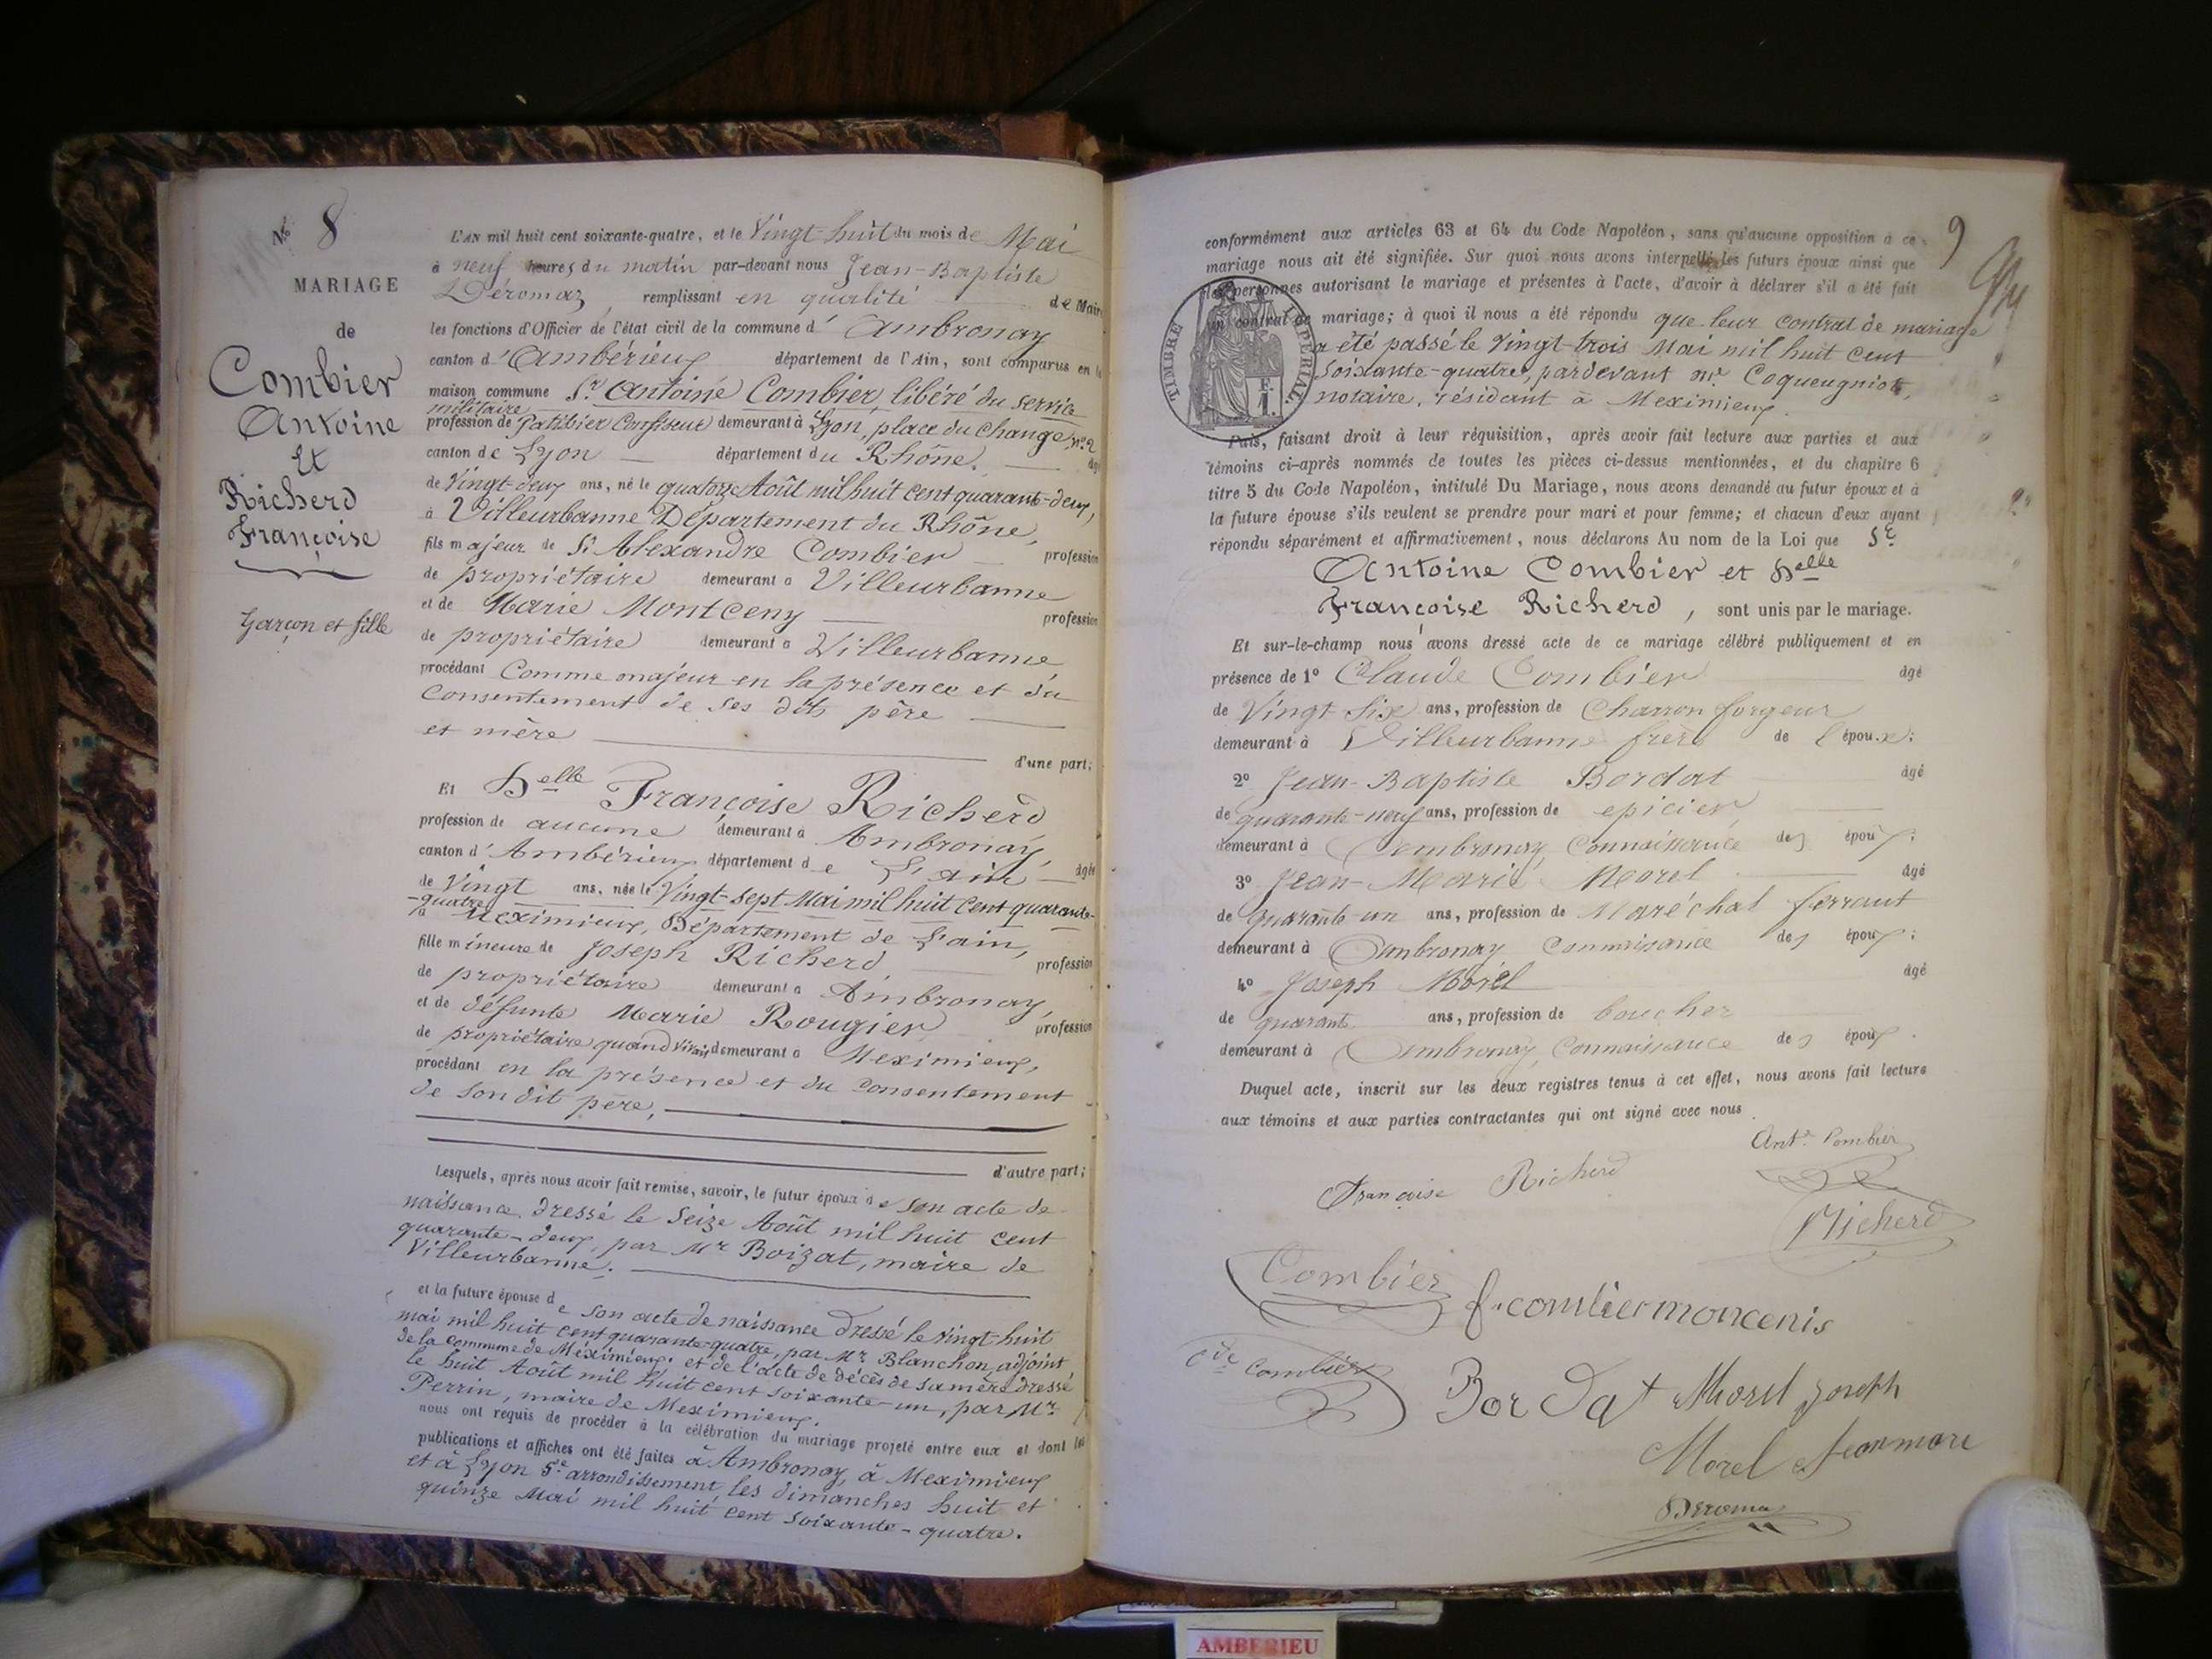 N° 8
MARIAGE
de
Combier
Antoine
Et
Richerd
Françoise
Garçon et fille
L'AN mil huit cent soixante-quatre, et le Vingt-huit du mois de Mai
à neuf heures du matin par-devant nous Jean-Baptiste
Déromas, remplissant en qualité de Maire
les fonctions d'Officier de l'état civil de la commune d' Ambronay
canton d' Ambérieux département de l'Ain, sont comparus en la
maison commune Sr Antoine Combier, libéré du service
militaire
profession de Patissier Confiseur demeurant à Lyon, place du Change, n° 2
canton de Lyon département du Rhône, âgé
de Vingt-deux ans, né le quatorze Août mil huit cent quarante-deux,
à Villeurbanne Département du Rhône,
fils majeur de Sr Alexandre Combier profession
de propriétaire demeurant à Villeurbanne
et de Marie Montceny profession
de propriétaire demeurant à Villeurbanne
procédant Comme majeur en la présence et du
Consentement de ses dits père
et mère
d'une part;
Et Delle Françoise Richerd
profession de aucune demeurant à Ambronay,
canton d' Ambérieux département de L'ain âgée
de Vingt ans, née le Vingt-sept Mai mil huit Cent quarante-
-quatre
à Meximieux, Département de L'ain,
fille mineure de Joseph Richerd, profession
de propriétaire demeurant à Ambronay,
et de défunte Marie Rougier profession
de propriétaire quand vivait demeurant à Meximieux,
procédant en la présence et du Consentement
de son dit père,
d'autre part;
Lesquels, après nous avoir fait remise, savoir, le futur époux de son acte de
naissance dressé le Seize Août mil huit cent
quarante-deux, par Mr Boizat, maire de
Villeurbanne.
et la future épouse de son acte de naissance dressé le vingt-huit
mai mil huit cent quarante-quatre, par Mr Blanchon, adjoint
de la Commune de Méximieux. et de l'acte de décès de sa mère dressé
le huit Août mil huit cent soixante-un, par Mr
Perrin, maire de Meximieux.
nous ont requis de procéder à la célébration du mariage projeté entre eux et dont les
publications et affiches ont été faites à Ambronay, à Meximieux
et à Lyon 5e arrondissement, les dimanches huit et
quinze Mai mil huit cent soixante-quatre.
9
conformément aux articles 63 et 64 du Code Napoléon, sans qu'aucune opposition à ce
mariage nous ait été signifiée. Sur quoi nous avons interpellé les futurs époux ainsi que
les personnes autorisant le mariage et présentes à l'acte, d'avoir à déclarer s'il a été fait
un contrat de mariage; à quoi il nous a été répondu que leur contrat de mariage
a été passé le vingt-trois Mai mil huit Cent
Soixante-quatre, pardevant Mr Coqueugniot,
notaire, résidant à Meximieux.
TIMBRE IMPERIAL
Puis, faisant droit à leur réquisition, après avoir fait lecture aux parties et aux
témoins ci-après nommés de toutes les pièces ci-dessus mentionnées, et du chapitre 6
titre 5 du Code Napoléon, intitulé Du Mariage, nous avons demandé au futur époux et à
la future épouse s'ils veulent se prendre pour mari et pour femme; et chacun d'eux ayant
répondu séparément et affirmativement, nous déclarons Au nom de la Loi que Sr
Antoine Combier et Delle
Françoise Richerd, sont unis par le mariage.
Et sur-le-champ nous avons dressé acte de ce mariage célébré publiquement et en
présence de 1° Claude Combier âgé
de Vingt Six ans, profession de Charron forgeur
demeurant à Villeurbanne frère de l'époux;
2° Jean-Baptiste Bordat âgé
de quarante-neuf ans, profession de epicier,
demeurant à Ambronay, Connaissance des époux;
3° Jean-Marie Morel âgé
de quarante-un ans, profession de Maréchal ferrant
demeurant à Ambronay Connaissance des époux;
4° Joseph Morel âgé
de quarante ans, profession de boucher
demeurant à Ambronay, Connaissance des époux.
Duquel acte, inscrit sur les deux registres tenus à cet effet, nous avons fait lecture
aux témoins et aux parties contractantes qui ont signé avec nous.
Ante Combier
Françoise Richerd
Richerd
Combier
f. combier moncenis
Cde Combier
Bordat Morel Joseph
Morel Jeanmare
Deroma
AMBERIEU